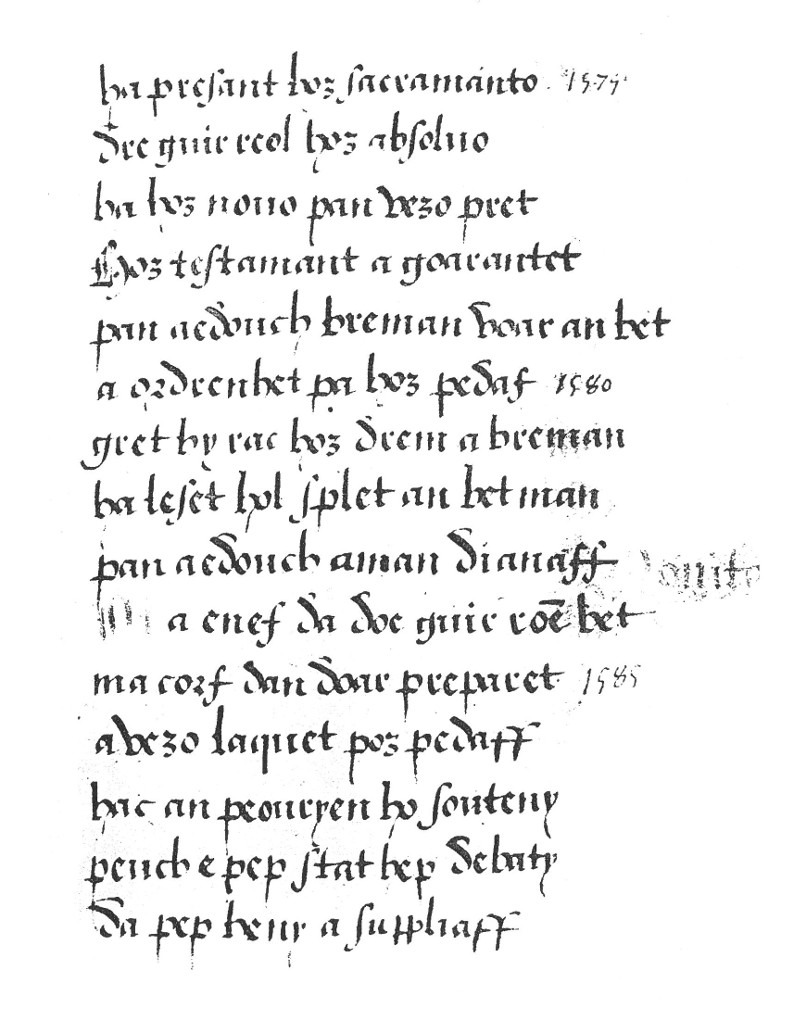 ha presant hoz sacramanto 1575
dre guir reol hoz absoluo
ha hoz nouo pan vezo pret
Hoz testamant a goarantet
pan aedouch breman voar an bet
a ordrenhet pa hoz pedaf 1580
gret hy rac hoz drem a breman
ha leset hol splet an bet man
pan aedouch aman dianaff
a enef da doe guir roē bet
ma corf dan doar preparet 1585
a vezo laquet poz pedaff
hac an peouryen ho souteny
peuch e pep stat hep debaty
da pep heny a suppliaff